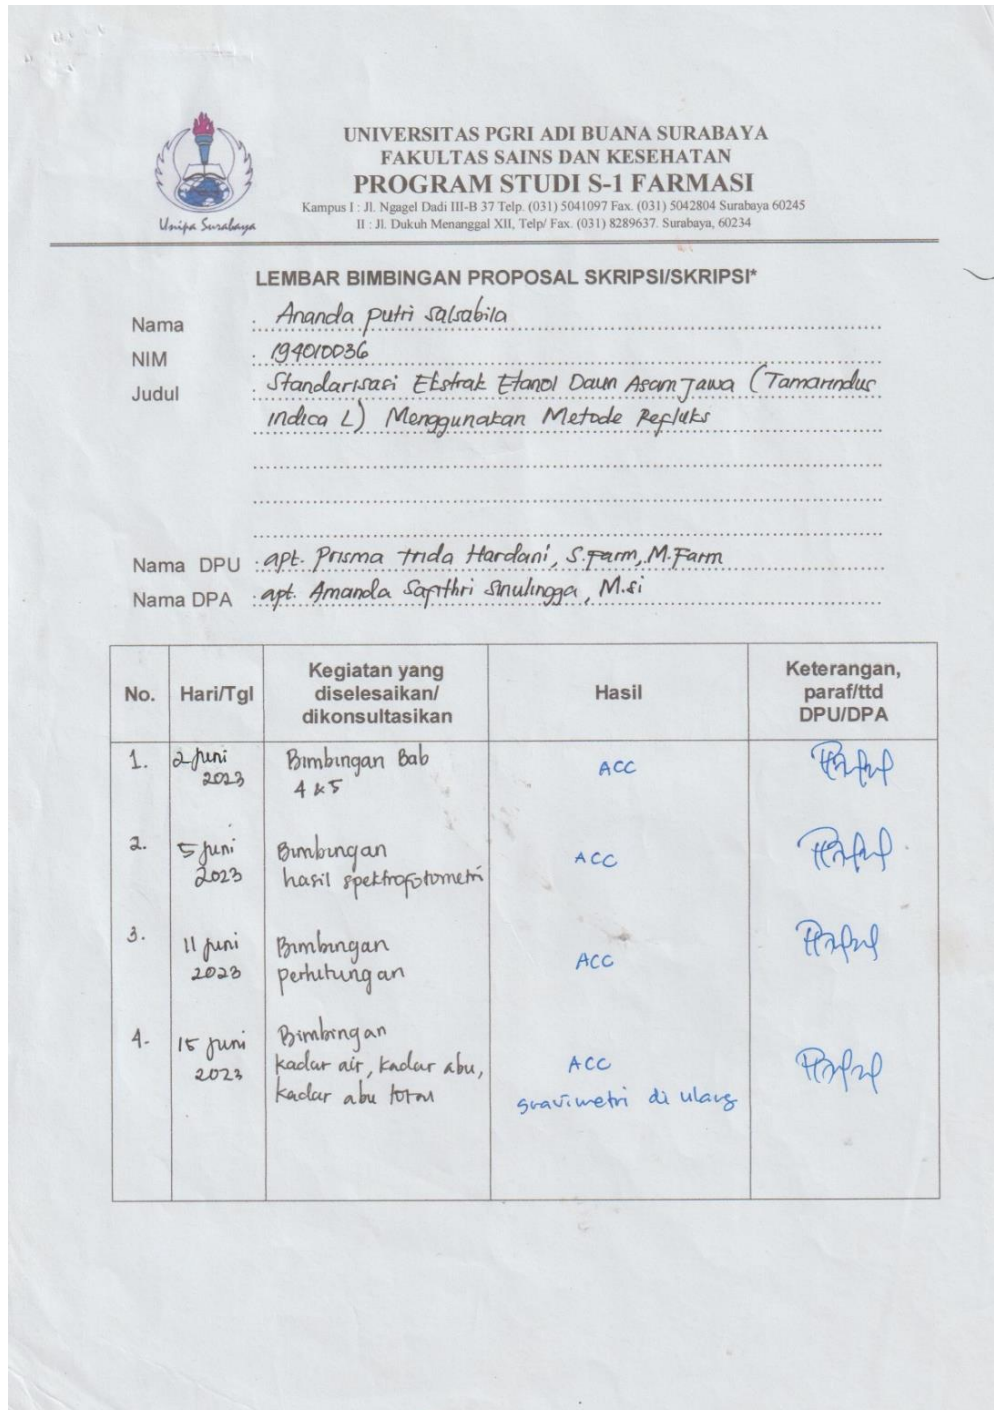 UNIVERSITAS PGRI ADI BUANA SURABAYA
FAKULTAS SAINS DAN KESEHATAN
PROGRAM STUDI S-1 FARMASI
Kampus I : Jl. Ngagel Dadi III-B 37 Telp. (031) 5041097 Fax. (031) 5042804 Surabaya 60245
II : Jl. Dukuh Menanggal XII, Telp/ Fax. (031) 8289637. Surabaya, 60234
Unipa Surabaya
LEMBAR BIMBINGAN PROPOSAL SKRIPSI/SKRIPSI*
Nama : Ananda putri Salsabila
NIM : 194010036
Judul : Standarisasi Ekstrak Etanol Daun Asam Jawa (Tamarindus
Indica L) Menggunakan Metode Refluks
Nama DPU : apt. Prisma Trida Hardani, S.Farm, M.Farm
Nama DPA : apt. Amanda Safithri Sinulingga, M.si
No. Hari/Tgl Kegiatan yang diselesaikan/ dikonsultasikan Hasil Keterangan, paraf/ttd DPU/DPA
1. 2 Juni Bimbingan Bab ACC
2023 4 & 5
2. 5 Juni Bimbingan ACC
2023 hasil spektrofotometri
3. 11 Juni Bimbingan ACC
2023 perhitungan
4. 15 Juni Bimbingan
2023 kadar air, kadar abu, ACC
kadar abu total gravimetri di ulang